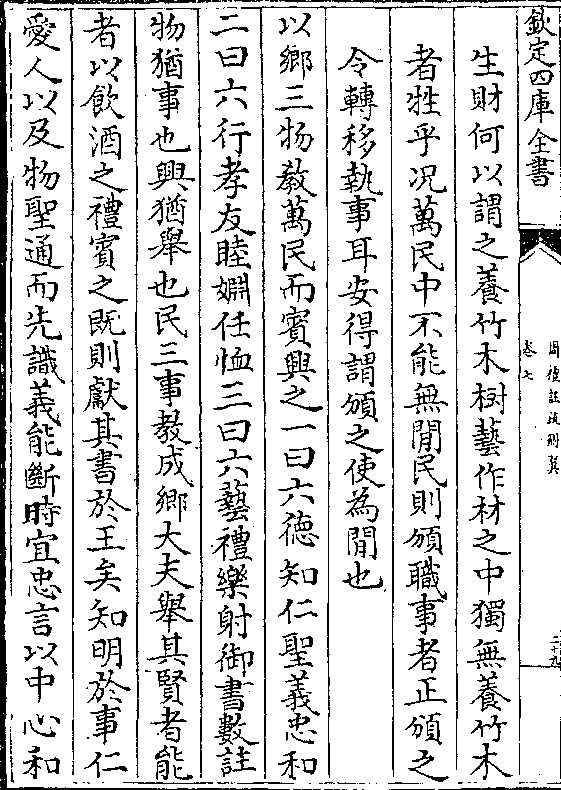 欽定四庫全書
周禮註疏刪翼
卷七
二十九
生財何以謂之養竹木樹藝作材之中獨無養竹木
者牲乎况萬民中不能無閒民則頒職事者正頒之
令轉移執事耳安得謂頒之使為閒也
以鄉三物教萬民而賓興之一曰六德知仁聖義忠和
二曰六行孝友睦婣任恤三曰六藝禮樂射御書數註
物猶事也興猶舉也民三事教成鄉大夫舉其賢者能
者以飲酒之禮賓之既則獻其書於王矣知明於事仁
愛人以及物聖通而先識義能斷時宜忠言以中心和